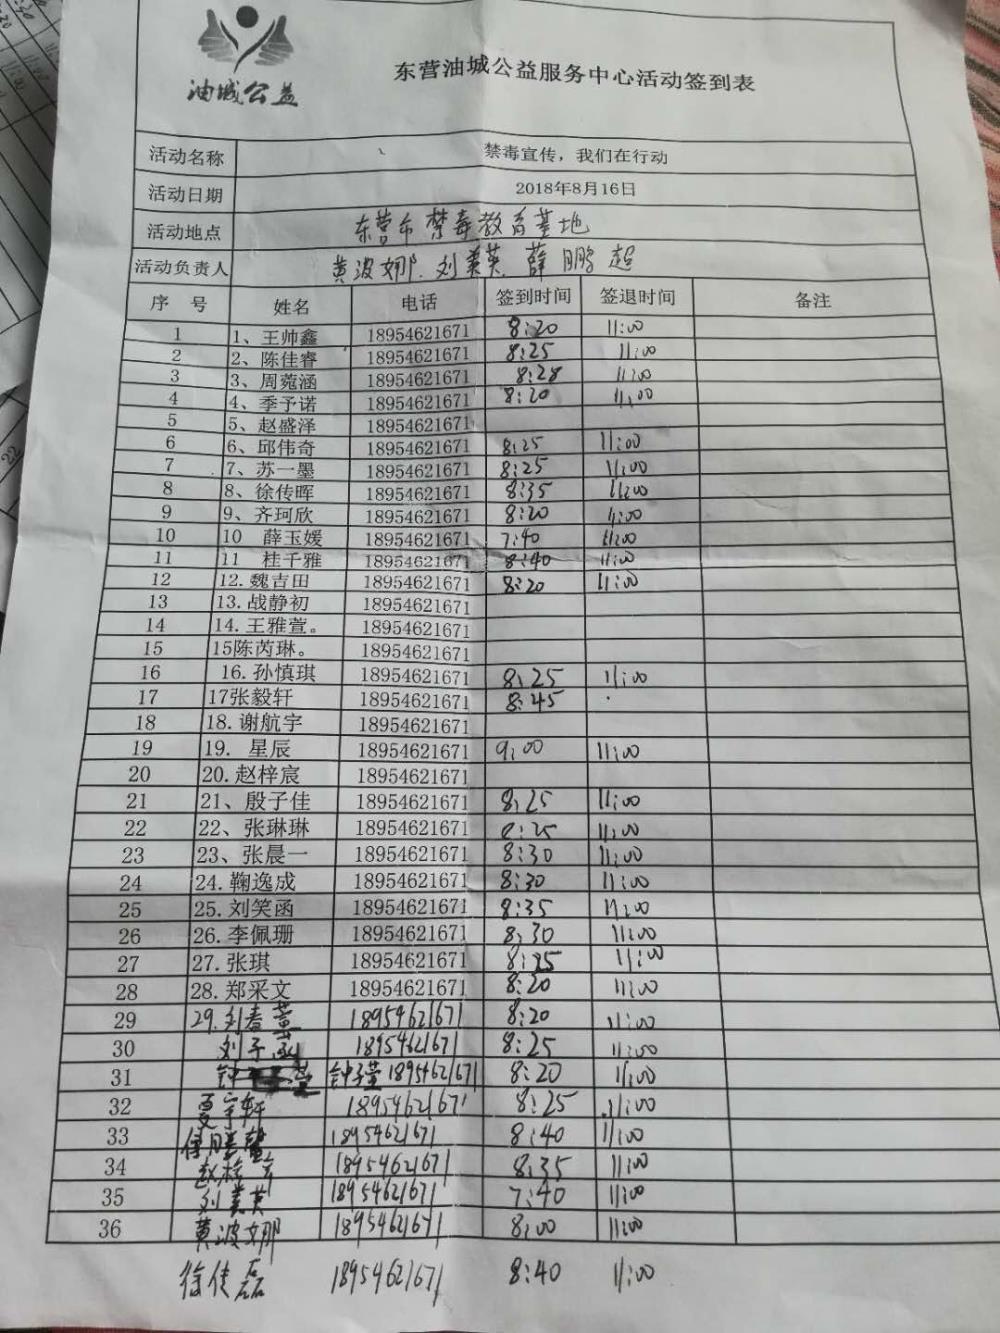 油城公益
东营油城公益服务中心活动签到表
活动名称 禁毒宣传，我们在行动
活动日期 2018年8月16日
活动地点 东营市禁毒教育基地
活动负责人 黄波娜.刘美英.薛鹏超
序号 姓名 电话 签到时间 签退时间 备注
1 1、王帅鑫 18954621671 8:20 11:00
2 2、陈佳睿 18954621671 8:25 11:00
3 3、周菀涵 18954621671 8:28 11:00
4 4、季予诺 18954621671 8:20 11:00
5 5、赵盛泽 18954621671
6 6、邱伟奇 18954621671 8:25 11:00
7 7、苏一墨 18954621671 8:25 11:00
8 8、徐传晖 18954621671 8:35 11:00
9 9、齐珂欣 18954621671 8:20 11:00
10 10 薛玉媛 18954621671 7:40 11:00
11 11 桂千雅 18954621671 8:40 11:00
12 12.魏吉田 18954621671 8:20 11:00
13 13.战静初 18954621671
14 14.王雅萱。 18954621671
15 15陈芮琳。 18954621671
16 16.孙慎琪 18954621671 8:25 11:00
17 17张毅轩 18954621671 8:45
18 18.谢航宇 18954621671
19 19. 星辰 18954621671 9:00 11:00
20 20.赵梓宸 18954621671
21 21、殷子佳 18954621671 8:25 11:00
22 22、张琳琳 18954621671 8:25 11:00
23 23、张晨一 18954621671 8:30 11:00
24 24.鞠逸成 18954621671 8:30 11:00
25 25.刘笑函 18954621671 8:35 11:00
26 26.李佩珊 18954621671 8:30 11:00
27 27.张琪 18954621671 8:25 11:00
28 28.郑采文 18954621671 8:20 11:00
29 29.刘春 18954621671 8:20 11:00
30 刘子 18954621671 8:25 11:00
31 钟 钟子萱 18954621671 8:20 11:00
32 夏宇轩 18954621671 8:25 11:00
33 18954621671 8:40 11:00
34 赵 18954621671 8:35 11:00
35 刘美英 18954621671 7:40 11:00
36 黄波娜 18954621671 8:00 11:00
徐佳磊 18954621671 8:40 11:00